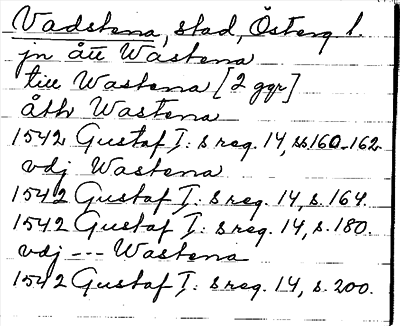 Vadstena, stad, Österg l.
jn ått Wastena
till Wastena [2 ggr]
åth Wastena
1542 Gustaf I: s reg. 14, ss 160-162
vdj Wastena
1542 Gustaf I: s reg. 14, s. 164.
1542 Gustaf I: s reg. 14, s. 180.
vdj --- Wastena
1542 Gustaf I: s reg. 14, s. 200.